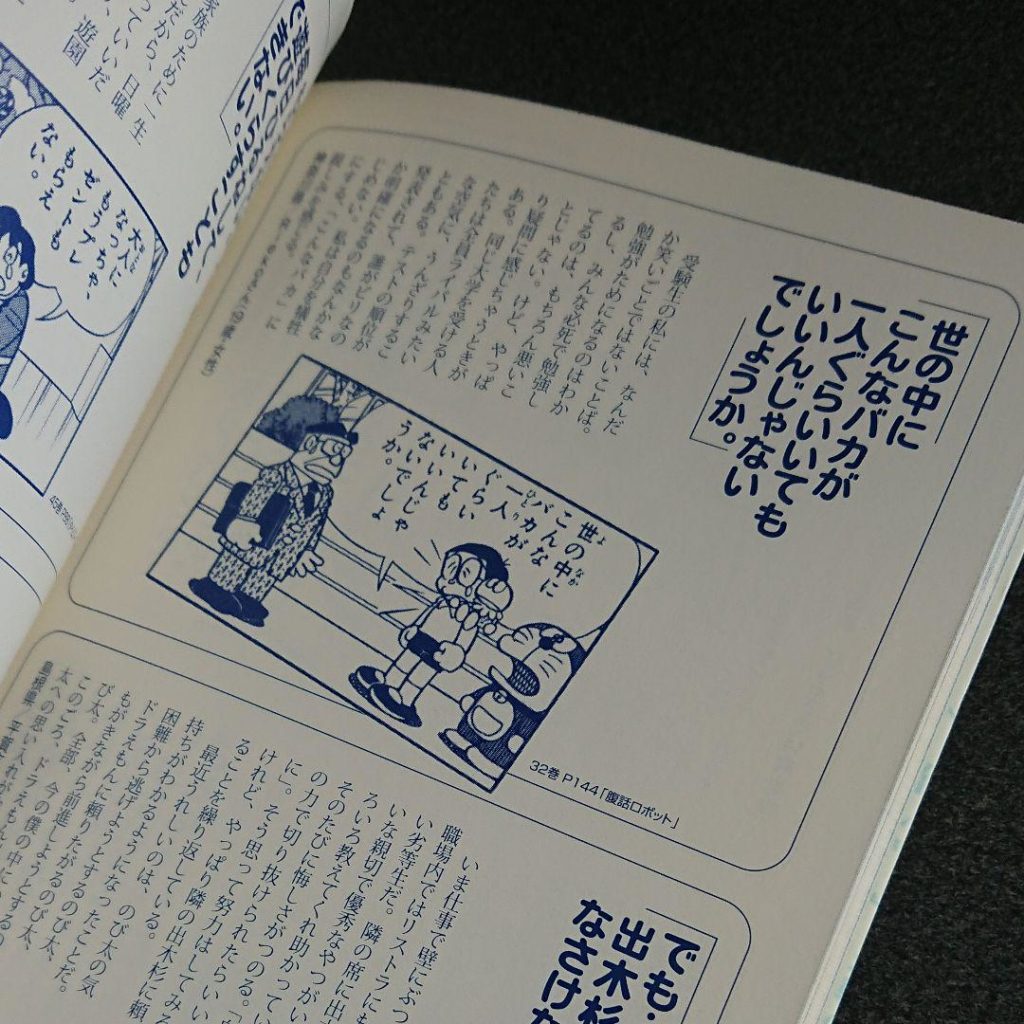 世の中に
こんなバカが
一人ぐらいいても
いいんじゃない
でしょうか。
受験生の私には、なんだ
か笑いごとではないことば。
勉強がためになるのはわか
るし、みんな必死で勉強し
てるのは、もちろん悪いこ
とじゃない。けど、やっぱ
り疑問に感じちゃうときが
ある。同じ大学を受ける人
たちは全員ライバルみたい
な空気に、うんざりするこ
ともある。テストの順位が
発表されて、誰がビリなの
か明確になるのもなんかな
じめない。私は自分を犠牲
にする、「こんなバカ」に
世の中に
こんなバカが
一人ぐらい
いても
いいんじゃ
ないでしょ
うか。
32巻 P144「腹話ロボット」
でも、
出木杉
なさけな
いま仕事で壁にぶつ
職場内ではリストラにも
い劣等生だ。隣の席に出木
いな親切で優秀なやつがい
ろいろ教えてくれ助かってい
そのたびに悔しさがつのる。
の力で切り抜けられたらいい
に」。そう思って努力はしてみ
けれど、やっぱり隣の出木杉に頼
ることを繰り返している。
最近うれしいのは、のび太の気
持ちがわかるようになったことだ。
困難から逃げようとするのび太、
ドラえもんに頼りたがるのび太、
もがきながら前進しようとするの
び太。全部、今の僕の中に
このごろ、ドラえもん
太への思い入れが
家族のために一生
だから、日曜
っていいだ
遊園
大人に
なっちゃ、
もうプレ
ゼントも
もらえ
ない。